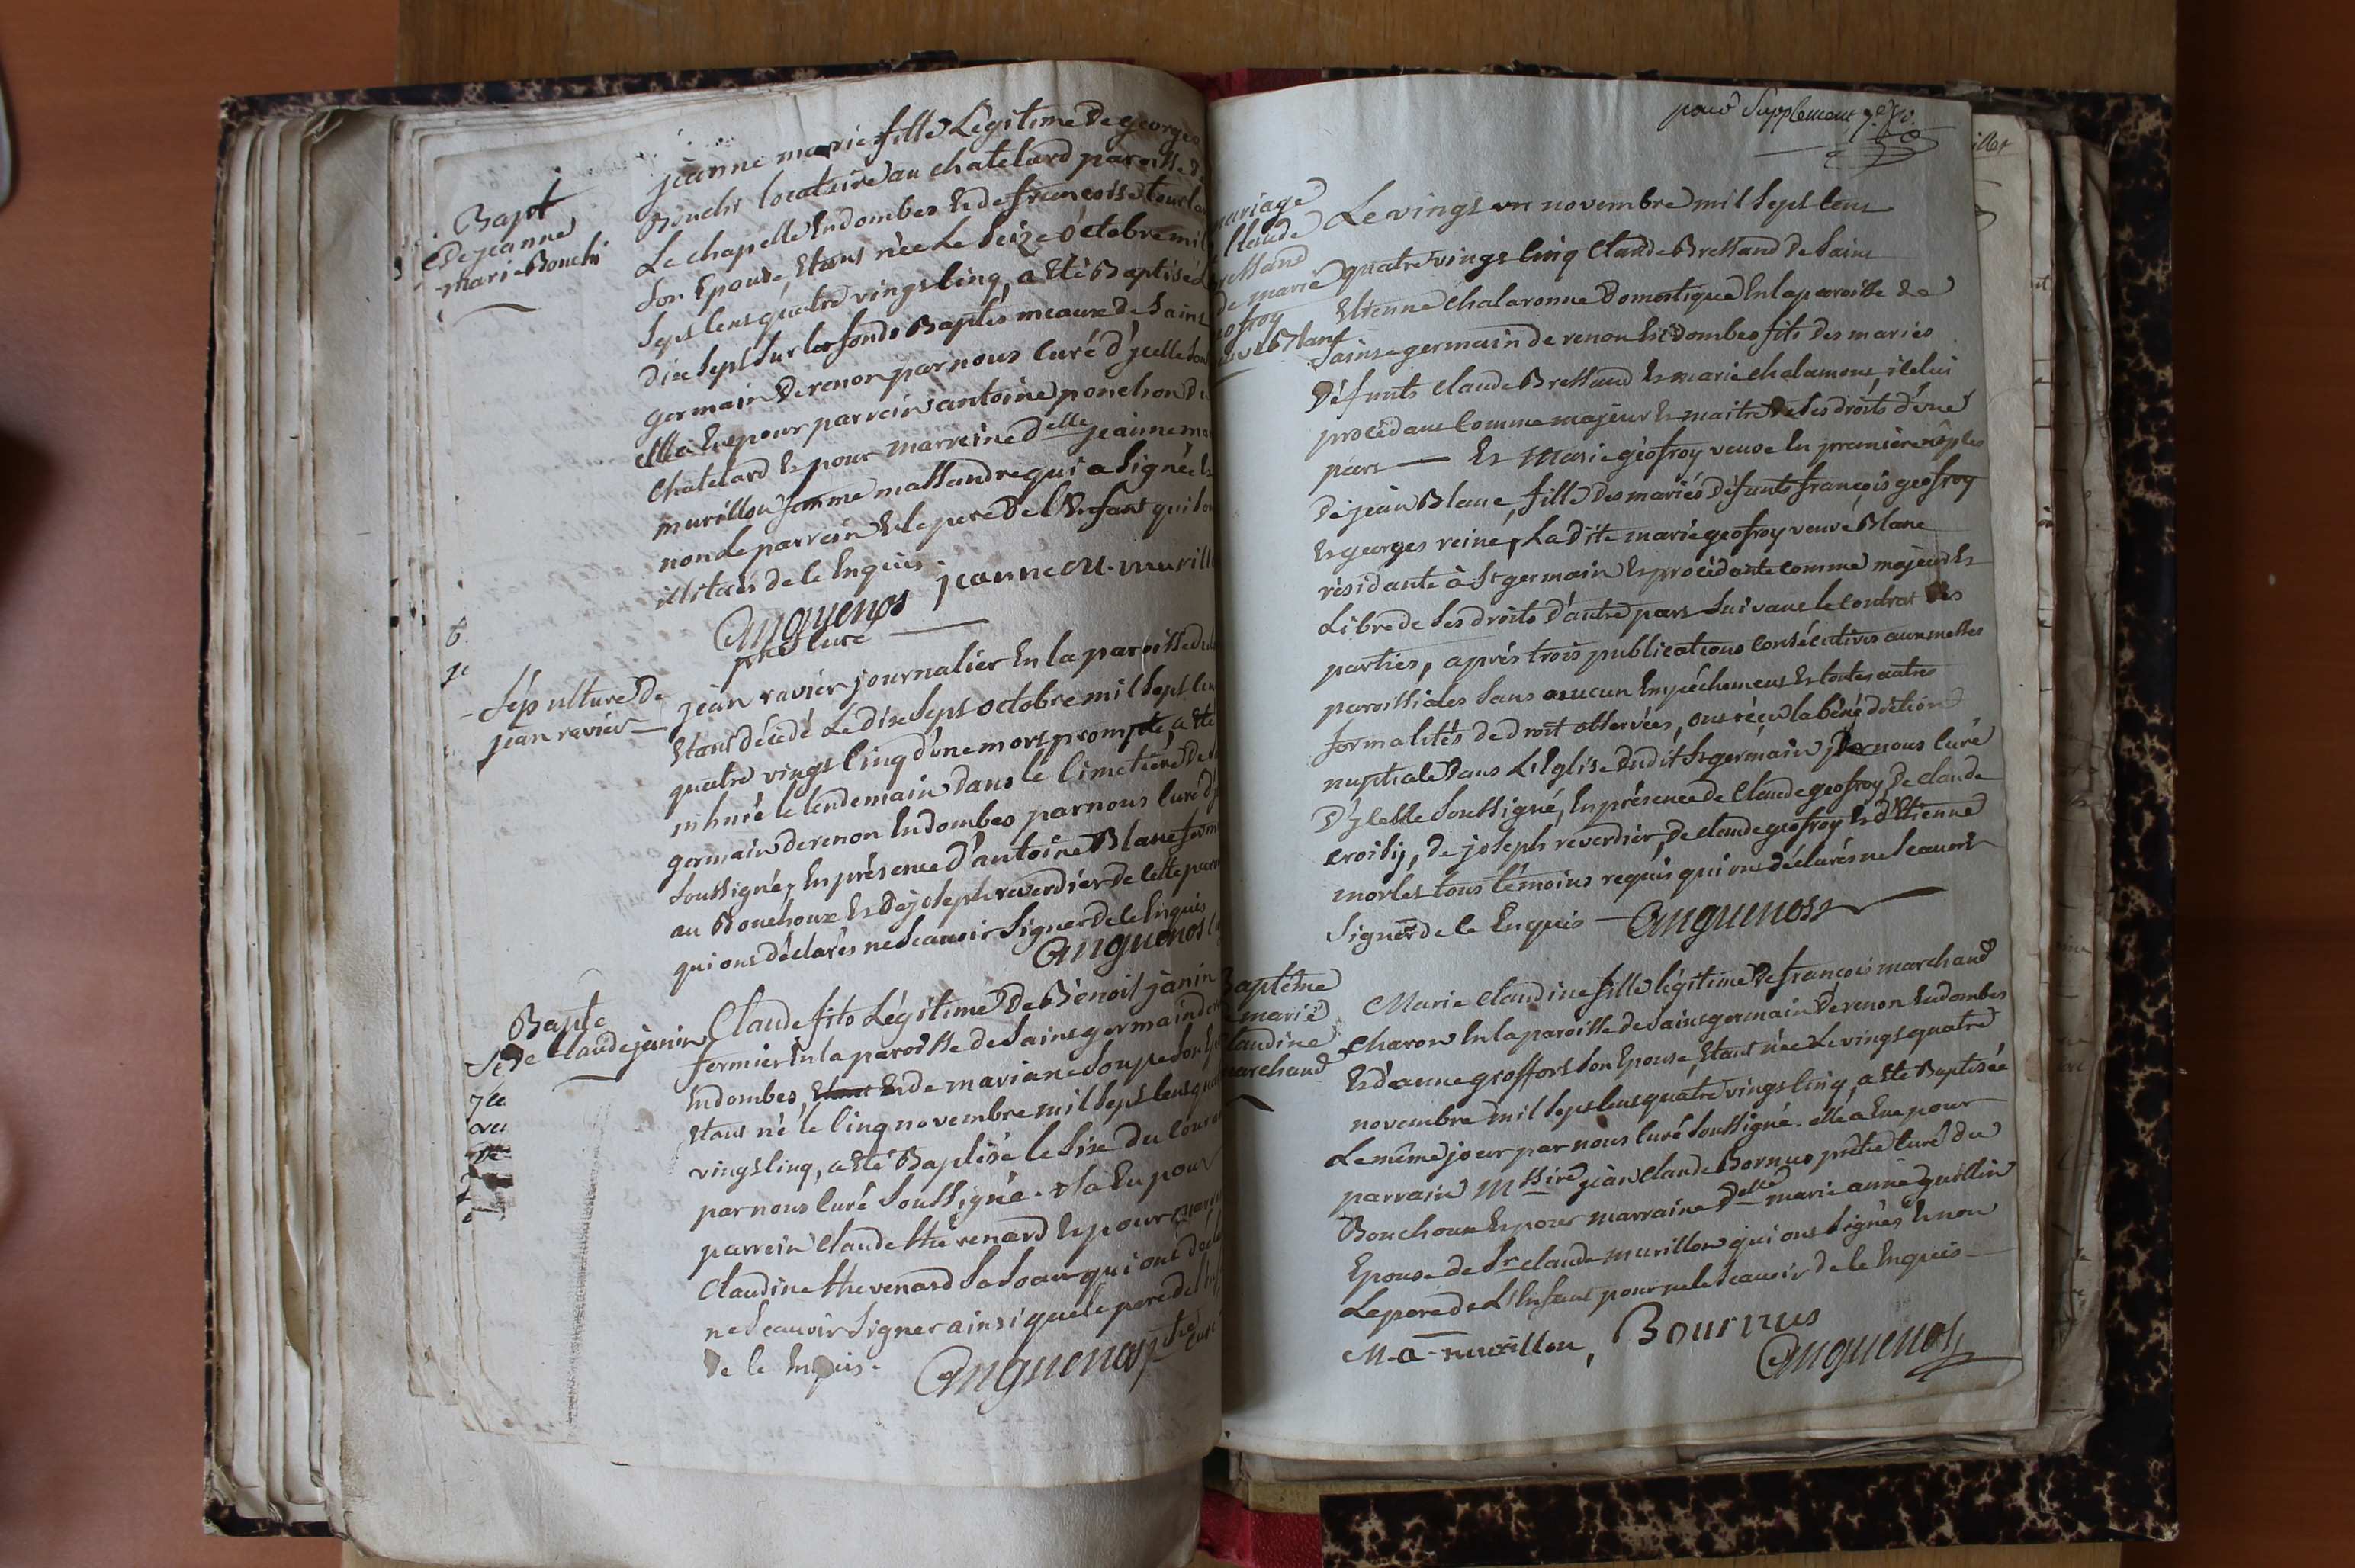 Bapt
De jeanne
marie Bouchi
jeanne marie fille Légitime De george
Bouchi locataire au chatelard paroisse
Le chapelle En dombes Et de françoise
son Epouse, Etant née Le Seize Octobre mil
Sept Cent quatre vingt Cinq, a Eté Baptisée
dix Sept Sur les fonds Baptismeaux de Saint
germain De renon par nous Curé d'ycelle
Elle a Eu pour parrain antoine ponchon
Chatelard Et pour marreine Delle jeanne
murillon femme massandre qui a Signée Et
non Le parrain Et le pere De l'Enfant
illitérés de Ce Enquis. jeanne M. murill
Anguenos
ptre Curé
Sépulture De
jean ravier
jean ravier journalier En la paroisse
Etant décédé Le Dix Sept octobre mil Sept
quatre vingt Cinq d'une mort prompte, a Eté
inhumé le lendemain Dans le Cimetière De
germain de renon En dombes par nous Curé
Soussigné, En présence d'antoine Blanc
au Bouchoux Et De joseph reverdier de Cette
qui ont déclarés ne Scavoir Signer De Ce Enquis
Anguenos
Bapte
De Claude janin
Claude fils Légitime De Bénoit janin
fermier En la paroisse de Saint germain
En dombes, Et de mariane Soupe Son
Etant né le Cinq novembre mil Sept Cent
vingt Cinq, a Eté Baptisé le Six Du Courant
par nous Curé Soussigné. Il a Eu pour
parrein Claude thévenard Et pour
Claudine thevenard Sa Soeur qui ont
ne Scavoir Signer ainsi que le pere de
De Ce Enquis. Anguenos ptre Curé
pour Supplement
mariage
Claude
Bressand
De marie
geofroy
veuve Blanc
Le vingt un novembre mil Sept Cent
quatre vingt Cinq Claude Bressand De Saint
Etienne Chalaronne Domestique En la paroisse de
Saint germain de renon En dombes fils Des mariés
Défunts Claude Bressand Et marie Chalamont, icelui
procédant Comme majeur Et maitre De Ses droits d'une
part — Et Marie géofroy veuve En premiere nôples
De jean Blanc, fille Des mariés Défunts françois geofroy
Et georges reine, La Dite marie geofroy veuve Blanc
résidante à St germain Et procédante comme majeure Et
Libre de Ses droits D'autre part Suivant le Contrat Des
parties, après trois publications Consécutives aux messes
paroissiales Sans aucun Empéchement Et toutes autres
formalités De Droit observées, ont réçu la bénédiction
nuptiale Dans L'Eglise Dudit St germain par nous Curé
D'ycelle Soussigné, En présence De Claude geofroy, De Claude
croisy, De joseph reverdier, De claude geofroy Et d'Etienne
morlet tous témoins requis qui ont déclarés ne Scavoir
Signer de Ce Enquis — Anguenos
Baptême
marie
Claudine
marchand
Marie Claudine fille légitime De françois marchand
Charon En la paroisse de Saint germain De renon En dombes
Et d'anne groffort Son Epouse, Etant née Le vingt quatre
novembre mil Sept Cent quatre vingt Cinq, a Eté Baptisée
Le même jour par nous Curé Soussigné. elle a Eue pour
parrain Mssire jean Claude Bornus prêtre Curé Du
Bouchoux Et pour marraine Delle marie anne guillin
Epouse de Sr claude murillon qui ont Signés Et non
Le pere De L'Enfant pour ne le Scavoir de Ce Enquis —
M. a. murillon, Bournus
Anguenos